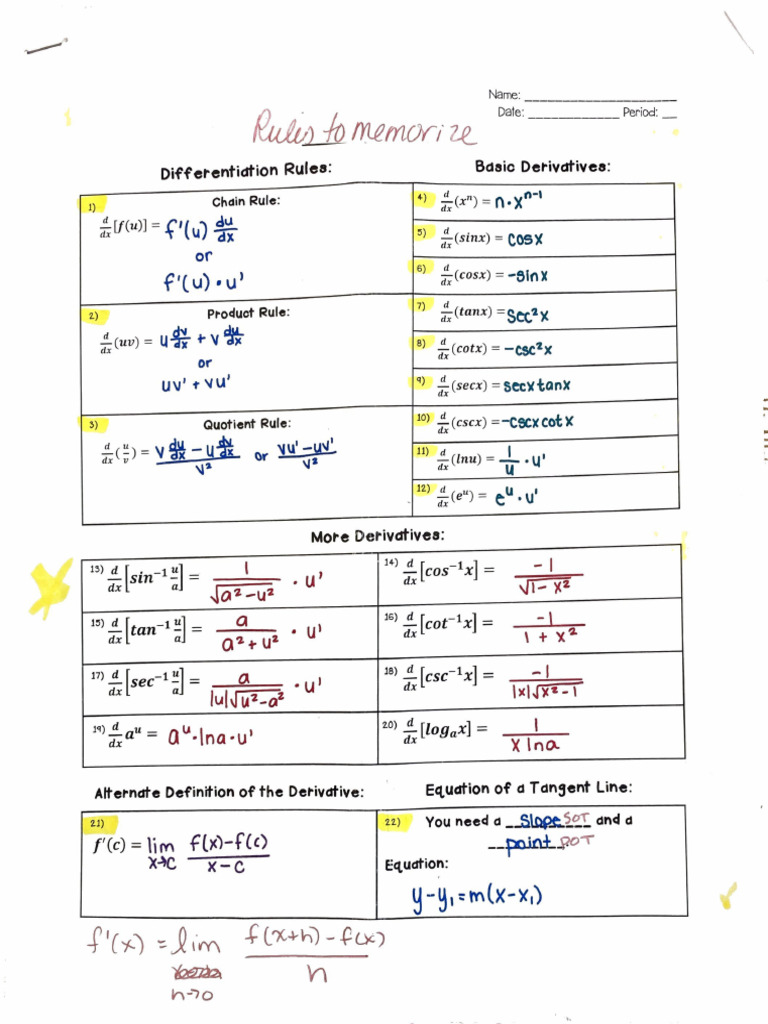 Name: ______________________
Date: _____________ Period: __
Rules to memorize
Differentiation Rules:
1) Chain Rule:
d/dx [f(u)] = f'(u) du/dx
or
f'(u) · u'
2) Product Rule:
d/dx (uv) = u dv/dx + v du/dx
or
uv' + vu'
3) Quotient Rule:
d/dx (u/v) = (v du/dx − u dv/dx)/v² or (vu' − uv')/v²
Basic Derivatives:
4) d/dx (xⁿ) = n·xⁿ⁻¹
5) d/dx (sinx) = cosx
6) d/dx (cosx) = -sinx
7) d/dx (tanx) = sec²x
8) d/dx (cotx) = -csc²x
9) d/dx (secx) = secxtanx
10) d/dx (cscx) = -cscxcotx
11) d/dx (lnu) = 1/u · u'
12) d/dx (eᵘ) = eᵘ · u'
More Derivatives:
13) d/dx [sin⁻¹ u/a] = 1/√(a² − u²) · u'
14) d/dx [cos⁻¹x] = -1/√(1 − x²)
15) d/dx [tan⁻¹ u/a] = a/(a² + u²) · u'
16) d/dx [cot⁻¹x] = -1/(1 + x²)
17) d/dx [sec⁻¹ u/a] = a/(|u|√(u² − a²)) · u'
18) d/dx [csc⁻¹x] = -1/(|x|√(x² − 1))
19) d/dx aᵘ = aᵘ·lna·u'
20) d/dx [logₐx] = 1/(x lna)
Alternate Definition of the Derivative:
21)
f'(c) = lim x→c (f(x)−f(c))/(x−c)
Equation of a Tangent Line:
22) You need a __slope__ SOT and a
__point__ POT
Equation:
y−y₁=m(x−x₁)
f'(x) = lim h→0 (f(x+h) − f(x))/h